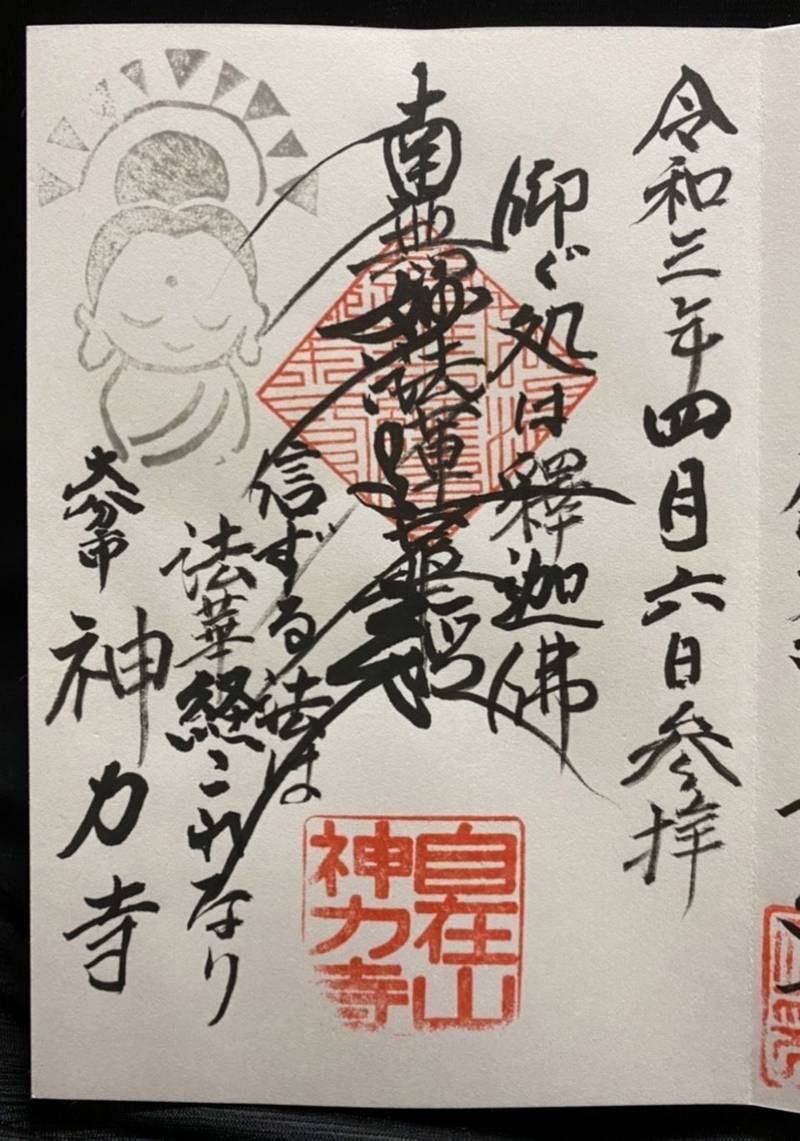 令和三年四月六日参拝
仰ぐ処は釋迦佛
南無妙法蓮華経
信ずる法は
法華経これなり
大分市 神力寺
自在山
神力寺